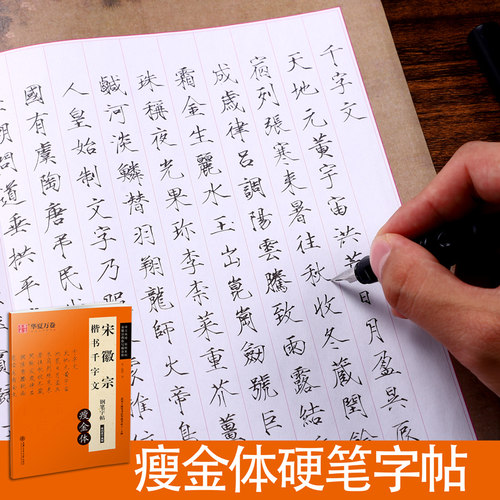 千字文
天地元黃宇宙洪荒日月盈昃辰
宿列張寒來暑往秋收冬藏閏
成歲律呂調陽雲騰致雨露結
霜金生麗水玉出崑崗劍號巨
珠稱夜光果珍李柰菜重芥薑
鹹河淡鱗替羽翔龍師火帝
人皇始制文字乃服
國有虞陶唐弔民
朝問道垂拱平
华夏万卷
宋徽宗
楷书千字文
钢笔字帖
瘦金体
瘦金体硬笔字帖